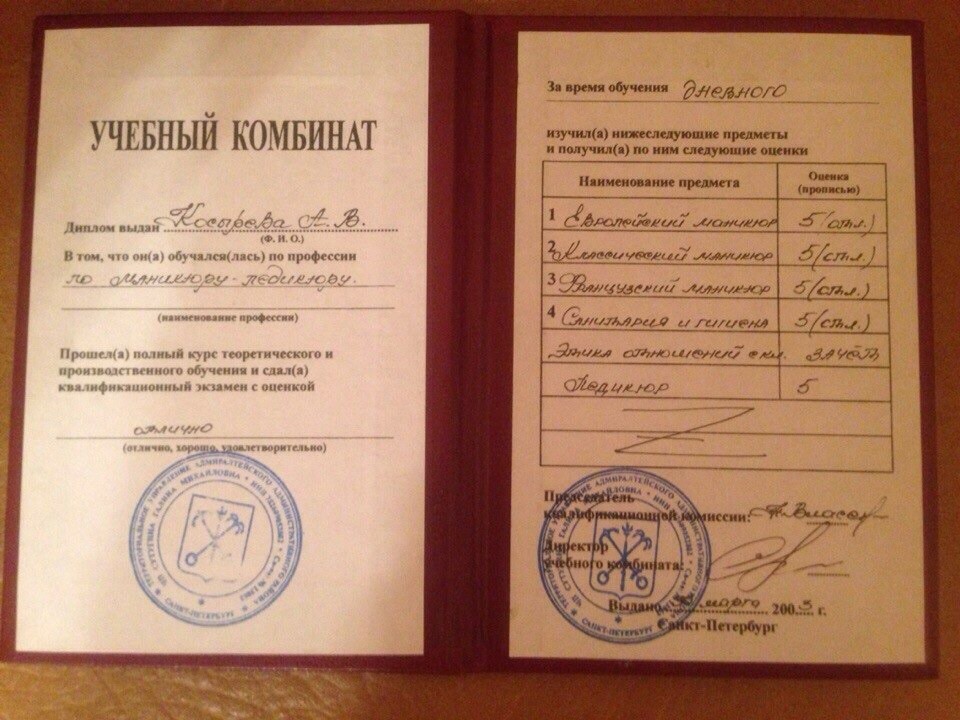 УЧЕБНЫЙ КОМБИНАТ
Диплом выдан Косырева А.В.
(Ф. И. О.)
В том, что он(а) обучался(лась) по профессии
по маникюру-педикюру.
(наименование профессии)
Прошел(а) полный курс теоретического и
производственного обучения и сдал(а)
квалификационный экзамен с оценкой
отлично
(отлично, хорошо, удовлетворительно)
ТЕРРИТОРИАЛЬНОЕ УПРАВЛЕНИЕ АДМИРАЛТЕЙСКОГО АДМИНИСТРАТИВНОГО РАЙОНА
ГАЛИНА МИХАЙЛОВНА
САНКТ-ПЕТЕРБУРГ
За время обучения дневного
изучил(а) нижеследующие предметы
и получил(а) по ним следующие оценки
Наименование предмета Оценка
(прописью)
1 Европейский маникюр 5(отл.)
2 Классический маникюр 5(отл.)
3 Французский маникюр 5(отл.)
4 Санитария и гигиена 5(отл.)
Этика отношений с кл. зачёт
Педикюр 5
Председатель
квалификационной комиссии:
Директор
учебного комбината:
Выдано марта 2003 г.
Санкт-Петербург